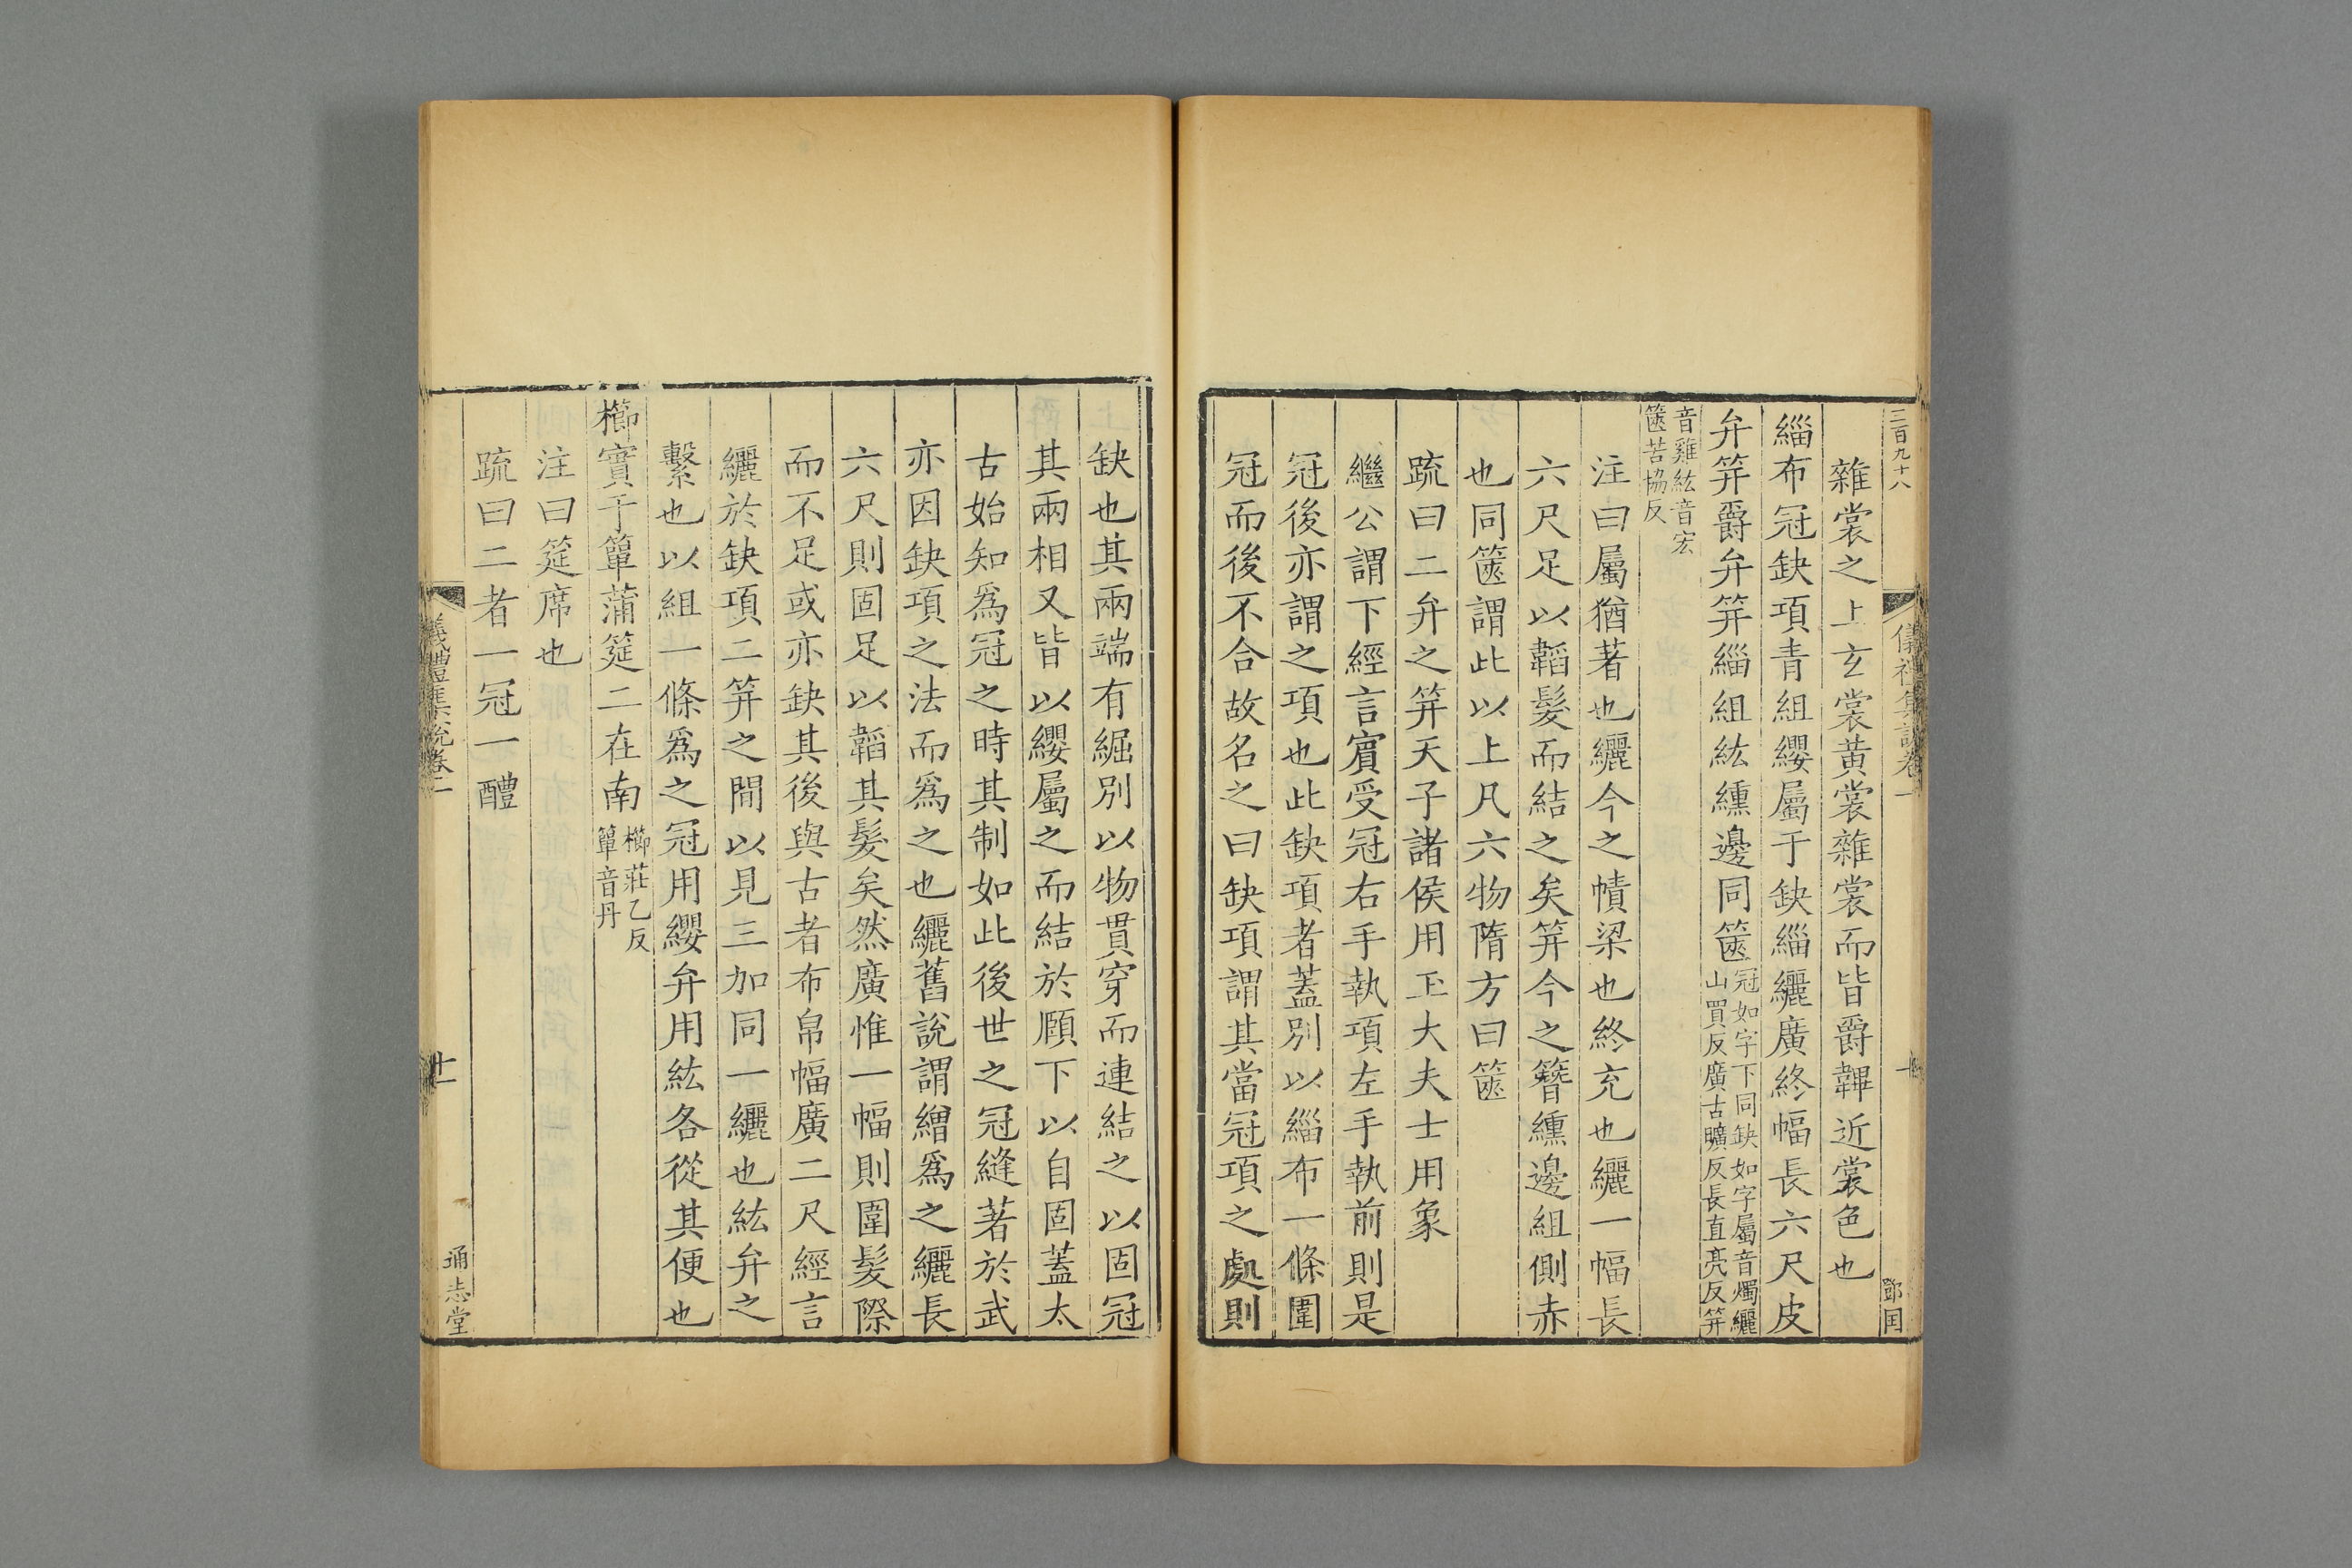 三百九十八
儀禮集說卷一
十
鄧国
雜裳之上玄裳黄裳雜裳而皆爵韠近裳色也
緇布冠缺項青組纓屬于缺緇纚廣終幅長六尺皮
弁笄爵弁笄緇組紘纁邊同篋
冠如字下同缺如字屬音燭纚
山買反廣古曠反長直亮反笄
音雞紘音宏
篋苦協反
注曰屬猶著也纚今之幘梁也終充也纚一幅長
六尺足以韜髮而結之矣笄今之簪纁邊組側赤
也同篋謂此以上凡六物隋方曰篋
疏曰二弁之笄天子諸侯用玉大夫士用象
繼公謂下經言賔受冠右手執項左手執前則是
冠後亦謂之項也此缺項者蓋別以緇布一條圍
冠而後不合故名之曰缺項謂其當冠項之處則
缺也其兩端有𦀎別以物貫穿而連結之以固冠
其兩相又皆以纓屬之而結於頤下以自固蓋太
古始知爲冠之時其制如此後世之冠縫著於武
亦因缺項之法而爲之也纚舊說謂繒爲之纚長
六尺則固足以韜其髮矣然廣惟一幅則圍髮際
而不足或亦缺其後與古者布帛幅廣二尺經言
纚於缺項二笄之間以見三加同一纚也紘弁之
繫也以組一條爲之冠用纓弁用紘各從其便也
櫛實于簞蒲筵二在南
櫛莊乙反
簞音丹
注曰筵席也
疏曰二者一冠一醴
儀禮集說卷一
十一
通志堂